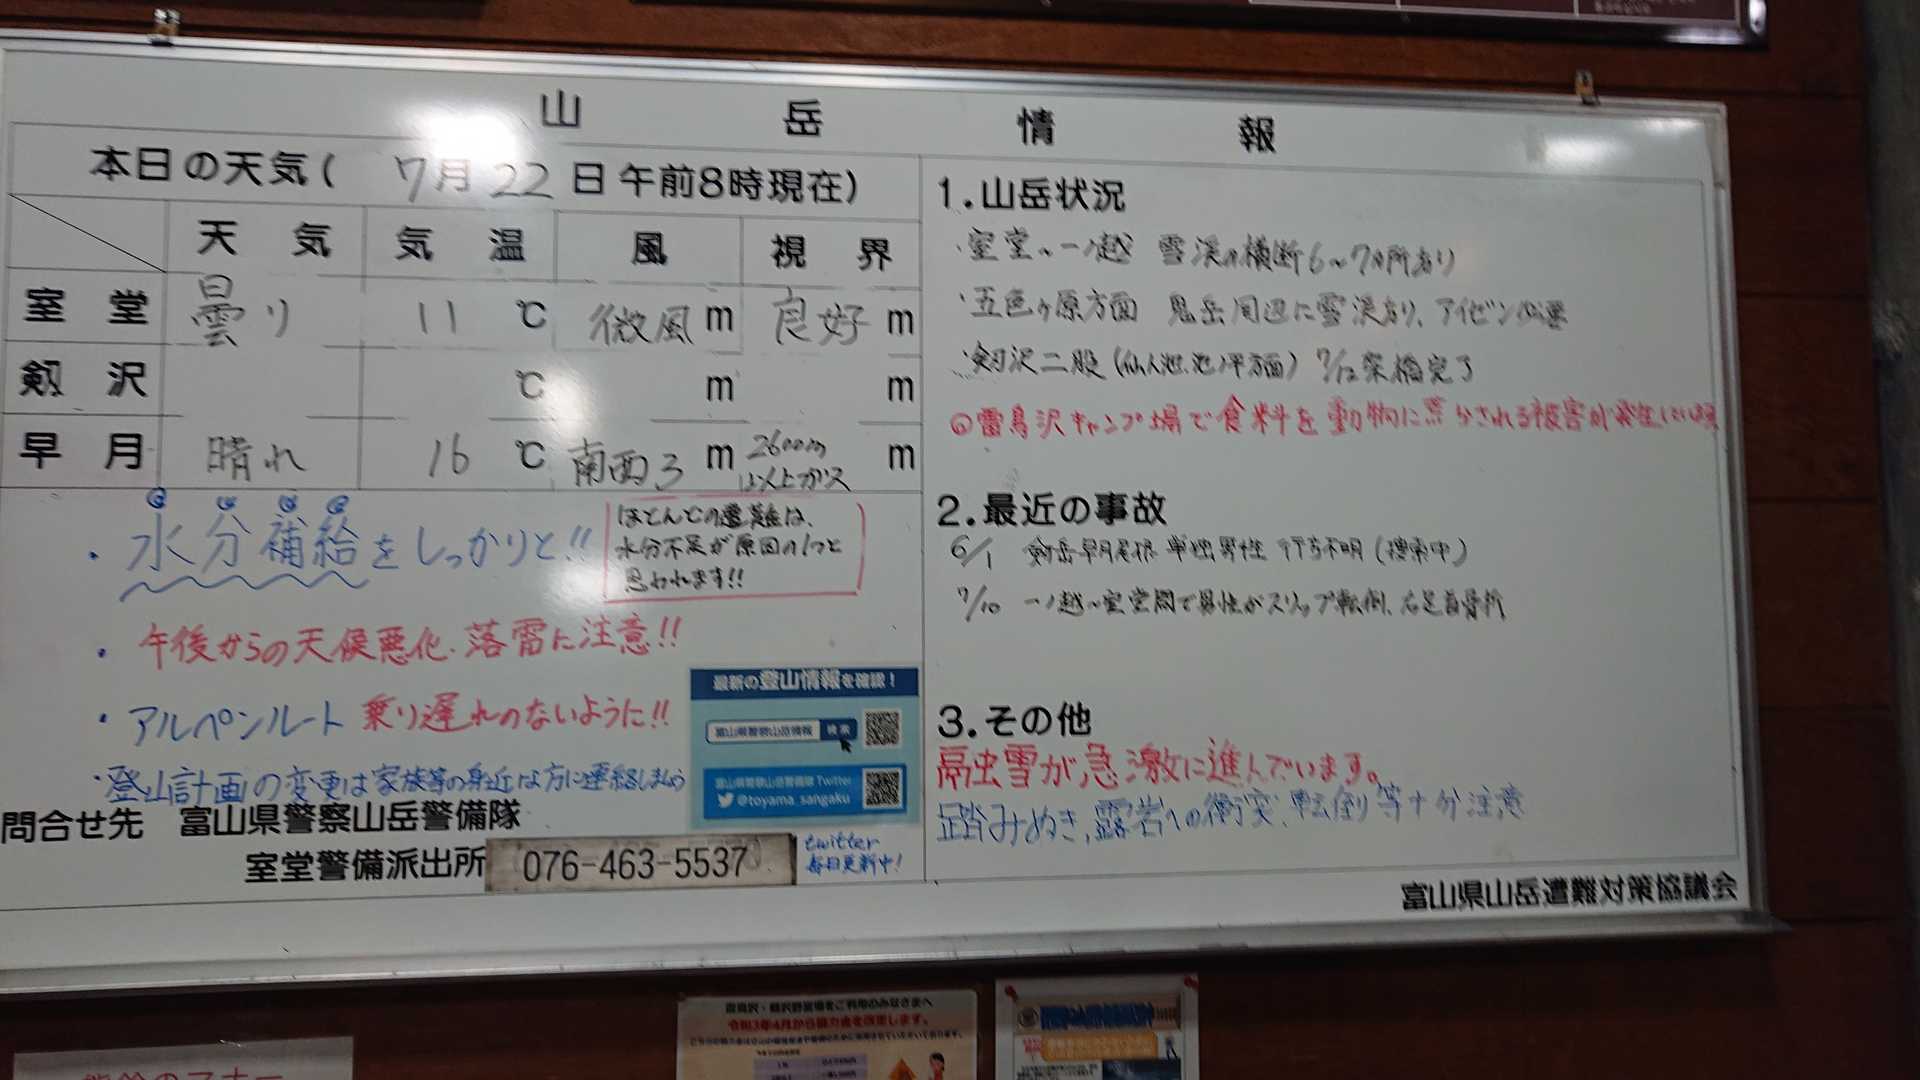 山岳情報
本日の天気(7月22日午前8時現在)
天気 気温 風 視界
室堂 曇り 11 ℃ 微風 m 良好 m
剱沢 ℃ m m
早月 晴れ 16 ℃ 南西3 m 2600m以上ガス m
・水分補給をしっかりと!!
ほとんどの遭難は、
水分不足が原因の1つと
思われます!!
・午後からの天候悪化、落雷に注意!!
・アルペンルート 乗り遅れのないように!!
・登山計画の変更は家族等の身近な方に連絡しましょう
最新の登山情報を確認!
富山県警察山岳情報 検索
富山県警察山岳警備隊 Twitter
@toyama_sangaku
問合せ先 富山県警察山岳警備隊
室堂警備派出所 076-463-5537
twitter
毎日更新中!
1.山岳状況
・室堂~一ノ越 雪渓の横断6~7カ所あり
・五色ヶ原方面 鬼岳周辺に雪渓あり、アイゼン必要
・剱沢二股(仙人池、池ノ平方面) 7/12架橋完了
◎雷鳥沢キャンプ場で食料を動物に荒らされる被害が発生しています
2.最近の事故
6/1 剱岳早月尾根 単独男性 行方不明(捜索中)
7/10 一ノ越~室堂間で男性がスリップ転倒、右足首骨折
3.その他
融雪が急激に進んでいます。
踏みぬき、露岩への衝突、転倒等十分注意
富山県山岳遭難対策協議会
雷鳥沢・剱沢野営場をご利用のみなさまへ
令和3年4月から協力金を改定します。